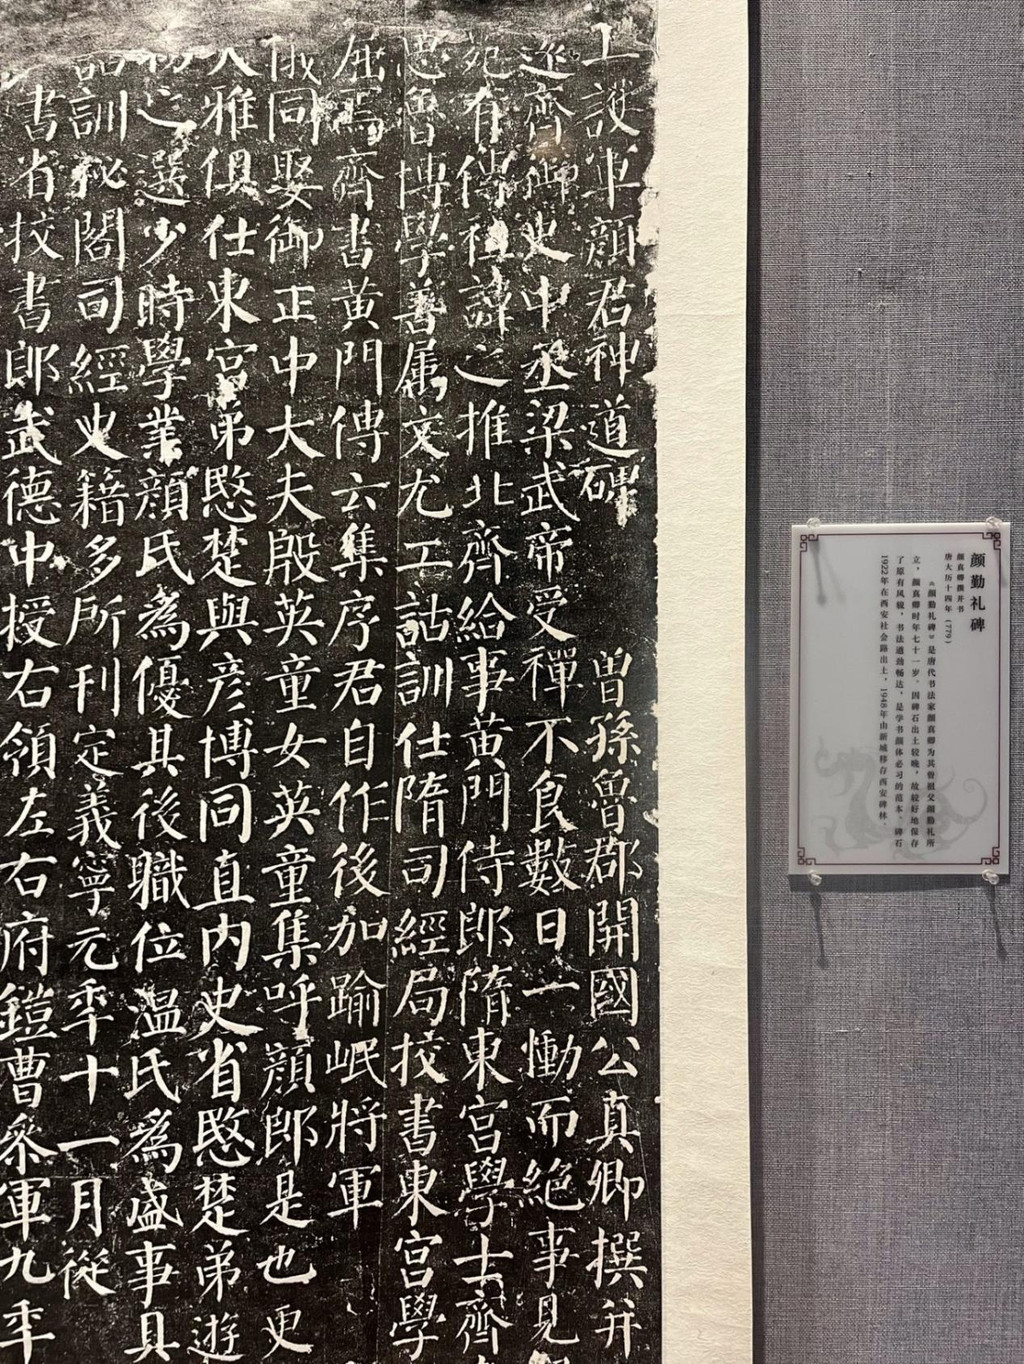 上護軍顏君神道碑
曾孫魯郡開國公真卿撰并
逖齊御史中丞梁武帝受禪不食數日一慟而絕事見
苑有傳祖諱之推北齊給事黃門侍郎隋東宮學士齊
愍魯博學善属文尤工詁訓仕隋司經局挍書東宮學
屈焉齊書黃門傳云集序君自作後加踰岷將軍
俄同娶御正中大夫殷英童女英童集呼顏郎是也更
大雅俱仕東宮弟愍楚與彦博同直内史省愍楚弟遊
初之選少時學業顏氏為優其後職位温氏為盛事具
品訓秘閣司經史籍多所刊定義寧元年十一月從
書省挍書郎武德中授右領左右府鎧曹叅軍九年
颜勤礼碑
颜真卿撰并书
唐大历十四年（779）
《颜勤礼碑》是唐代书法家颜真卿为其曾祖父颜勤礼所
立，颜真卿时年七十一岁。因碑石出土较晚，故较好地保存
了原有风貌，书法遒劲畅达，是学书颜体必习的范本。碑石
1922年在西安社会路出土，1948年由新城移存西安碑林。